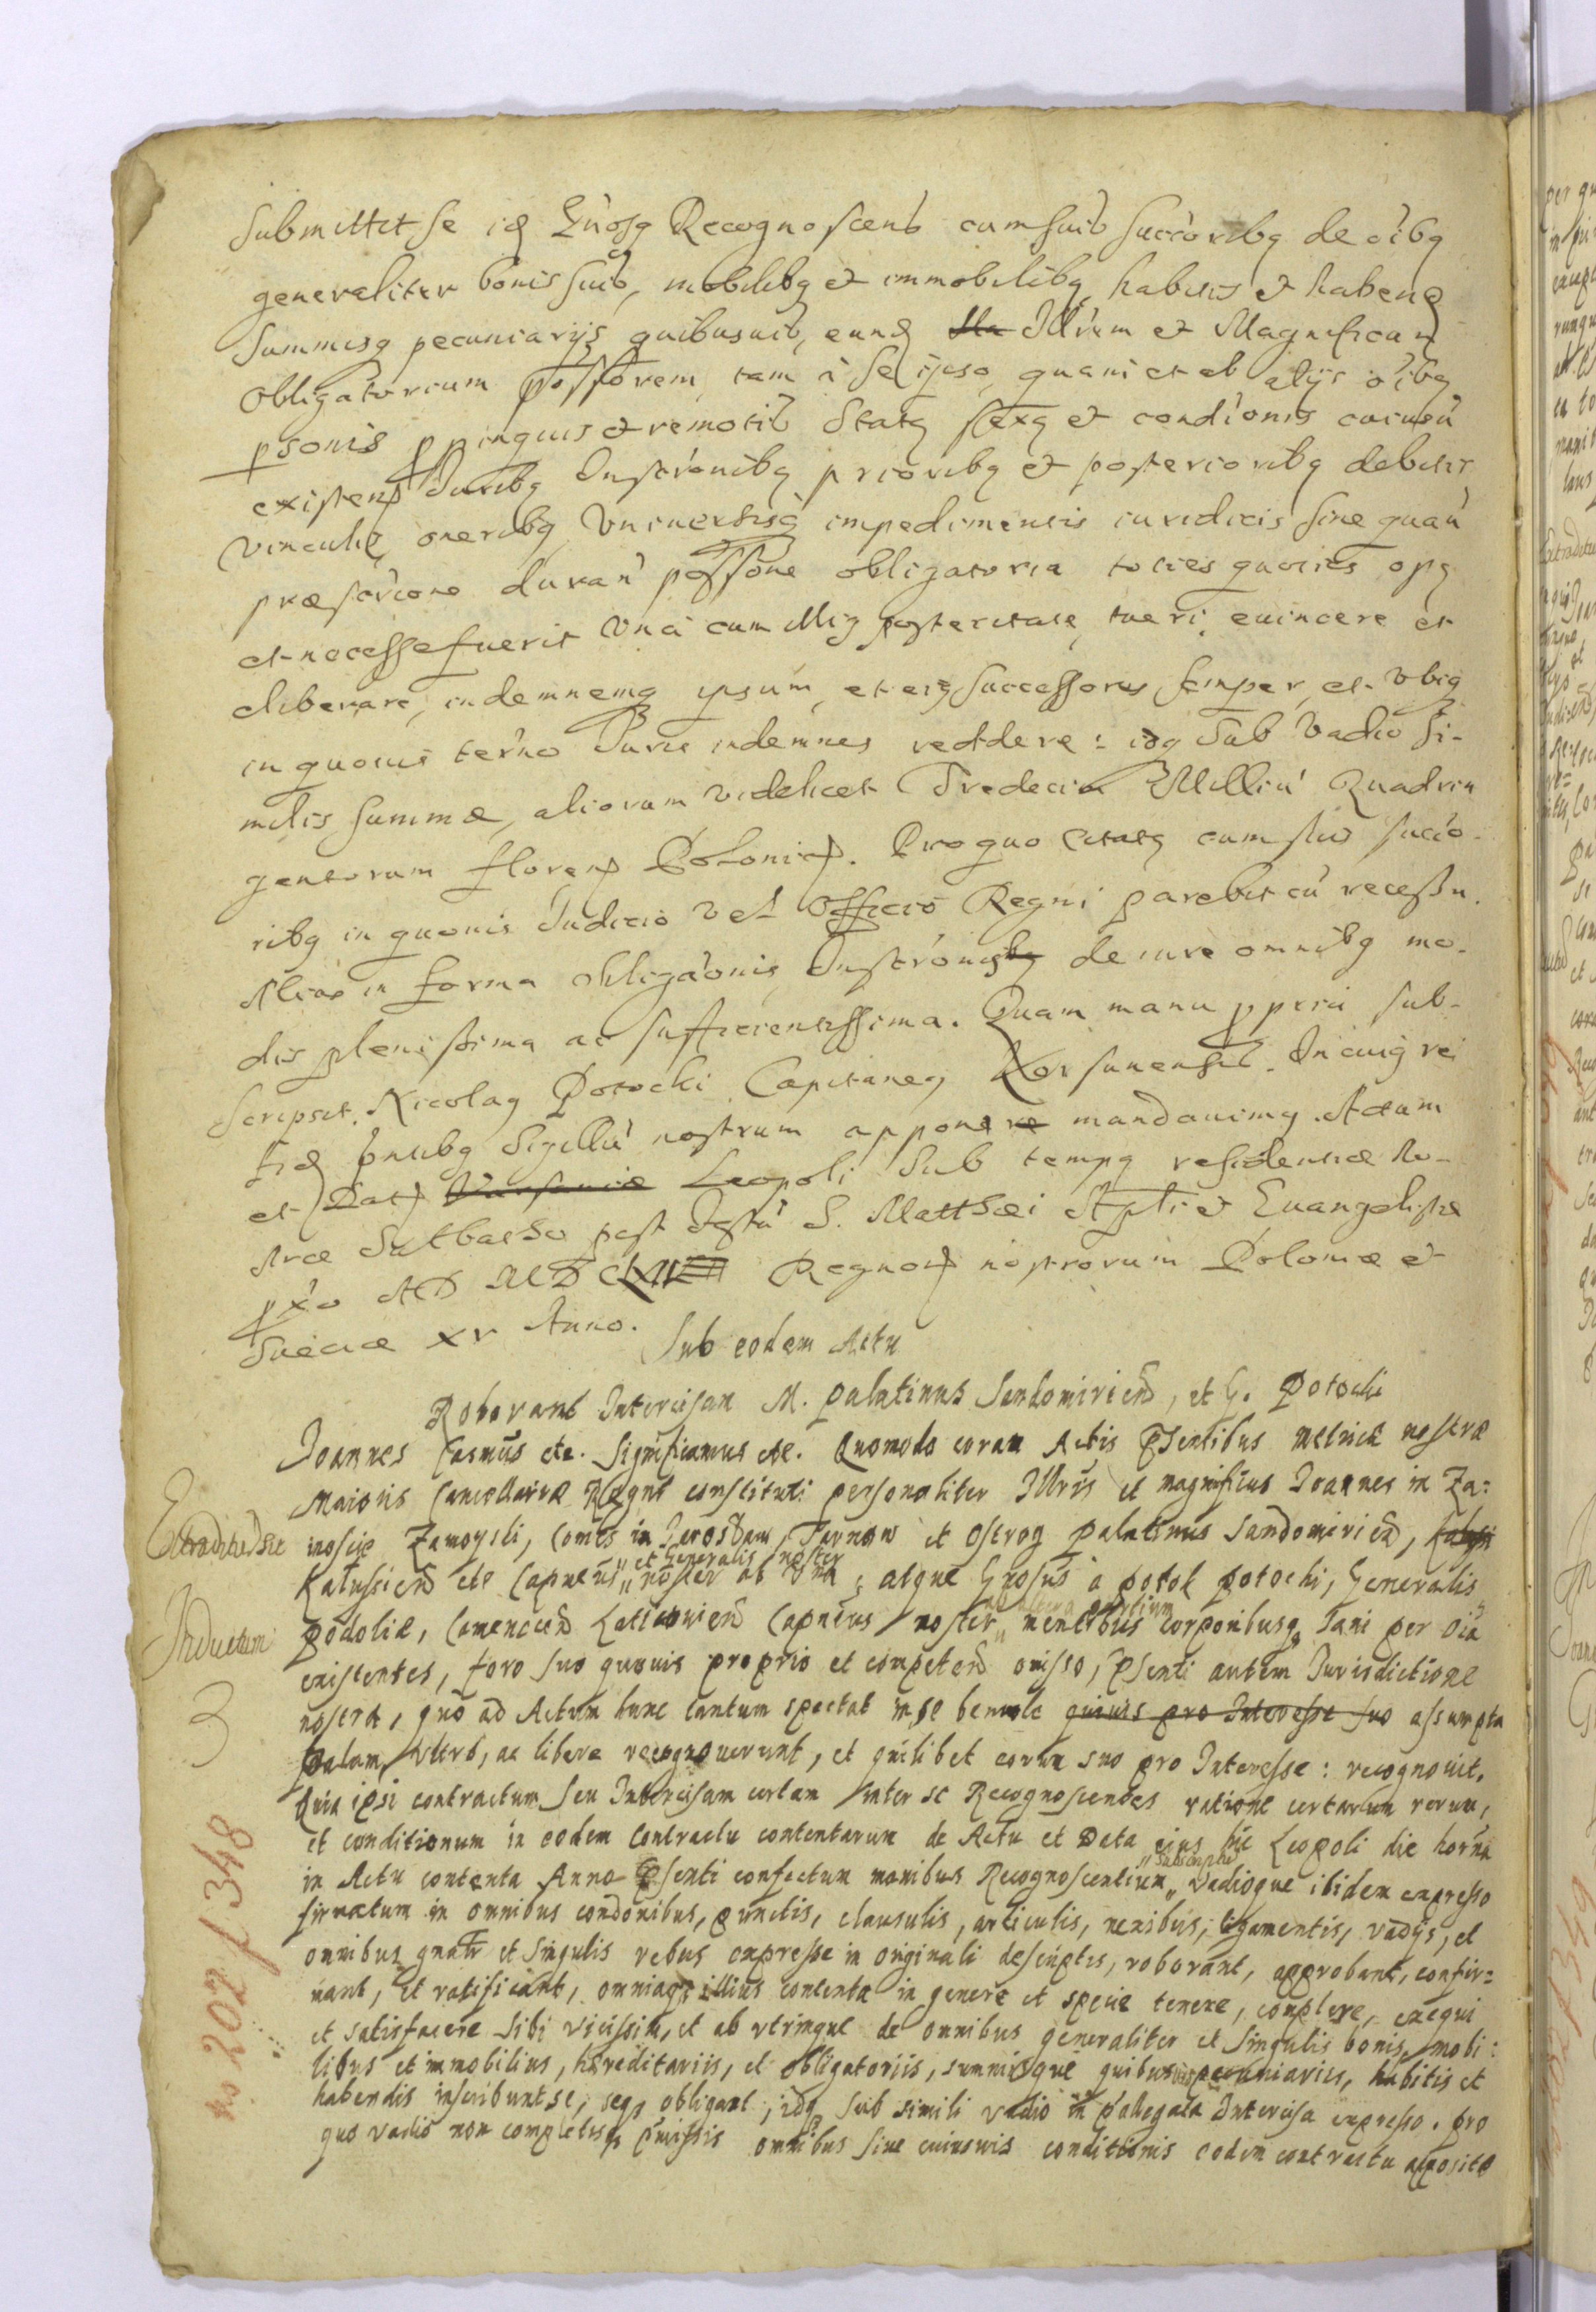 Submittet se id Gnosq Recognoscens cum suis succoribq de oibq
generaliter bonis suis, mobilibq et immobilibq habitis et habend
summisq pecuniarijs quibusuis, eund Illrem et Magnificum
obligatorium possorem tam à se ipso quam et ab alijs oibq
psonis ppinquis et remotis Statq sexq et condionis cuiuscu
existen Juribq Inscronibq prioribq et posterioribq debitis,
vinculis, oneribq Vniuersisq impedimentis iuridicis sine quau
præscrione duran possone obligatoria toties quoties opq
et necesse fuerit Vna cum illiq posteritate, tueri, euincere et
liberare, indemnemq ipsum, et eiq successores semper, et vbiq
in quouis terno Juris indemnes reddere: idq Sub Vadio si-
milis summæ, aliorum videlicet Tredecim Milliu Quadrin
gentorum floren Polonic. Pro quo Citatq cum suis succo-
ribq in quouis Judicio vel Officio Regni parebit cu recessu.
Alias in forma obligaonis Inscronis de iure omnibq mo-
dis plenissima ac sufficientissima. Quam manu ppria sub-
scripsit. Nicolaq Potocki Capitaneq Korsunensis. In cuiq rei
fid pntibq Sigillu nostrum apponere mandauimq. Actum
et Dat Varsauiæ Leopoli Sub tempq residentiæ no-
stræ Sabbatho post Festu S. Matthæi Apli et Euangelistæ
pxo AD MDC Regnor nostrorum Poloniæ et
Sueciæ XV Anno.
Sub eodem Actu
Roborant Intercisam M. Palatinus Sandomirien, et G. Potocki
Joannes Casmus etc. Significamus etc. Quomodo coram Actis Psentibus Metricæ nostræ
Maioris Cancellariæ Regni constituti personaliter Illris et magnificus Joannes in Za:
Extraditu
moscie Zamoyski, Comes in Jarosław, Tarnow et Ostrog Palatinus Sandomirien,
et Generalis noster
Kalussien etc Capneus noster ab Vna; atque Gnosus à potok Potocki, Generalis
Inductum
podoliæ, Camenecen Laticouien Capneus noster, mentibus corporibusq Sani per oia
existentes, foro suo quouis proprio et competen omisso, Psenti autem Jurisdictione
3
nostra, quo ad Actum hunc tantum spectat in se beneuole quiuis pro Interesse suo assumpta
palam, vltro, ac libere recognouerunt, et quilibet eorum suo pro Interesse: recognouit.
Quia ipsi contractum seu Intercisam certam inter se Recognoscentes ratione certarum rerum,
et conditionum in eodem Contractu contentarum de Actu et Data eius hic Leopoli die horna
subscriptu
in Actu contenta Anno Psenti confectum manibus Recognoscentium vadioque ibidem expresso
firmatum in omnibus condonibus, punctis, clausulis, articulis, nexibus, ligamentis, vadijs, et
omnibus gnatr et singulis rebus expresse in originali descriptis, roborant, approbant, confir=
mant, et ratificant, omniaq illius contenta in genere et specie tenere, complere, exequi
et satisfacere sibi vicissim, et ab vtrinque de omnibus generaliter et singulis bonis, mobi:
libus et immobilius, hæreditariis, et obligatoriis, summisque quibusuis pecuniariis, habitis et
habendis inscribunt se, seq obligant, idq sub simili vadio in pallegata Intercisa expresso. pro
quo vadio non completisq pmissis omnibus siue cuiusuis conditionis eodem contractu apposita
No 202 f 348